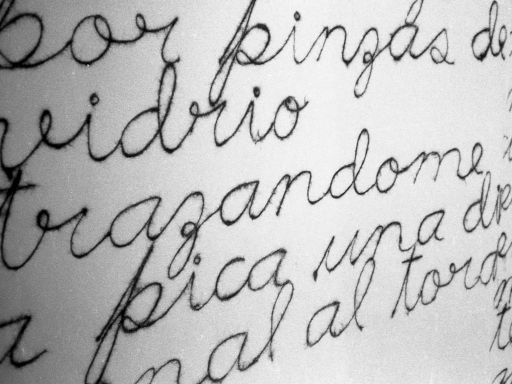 por pinzas de
vidrio
trazandome
a pica una di
nal al torde